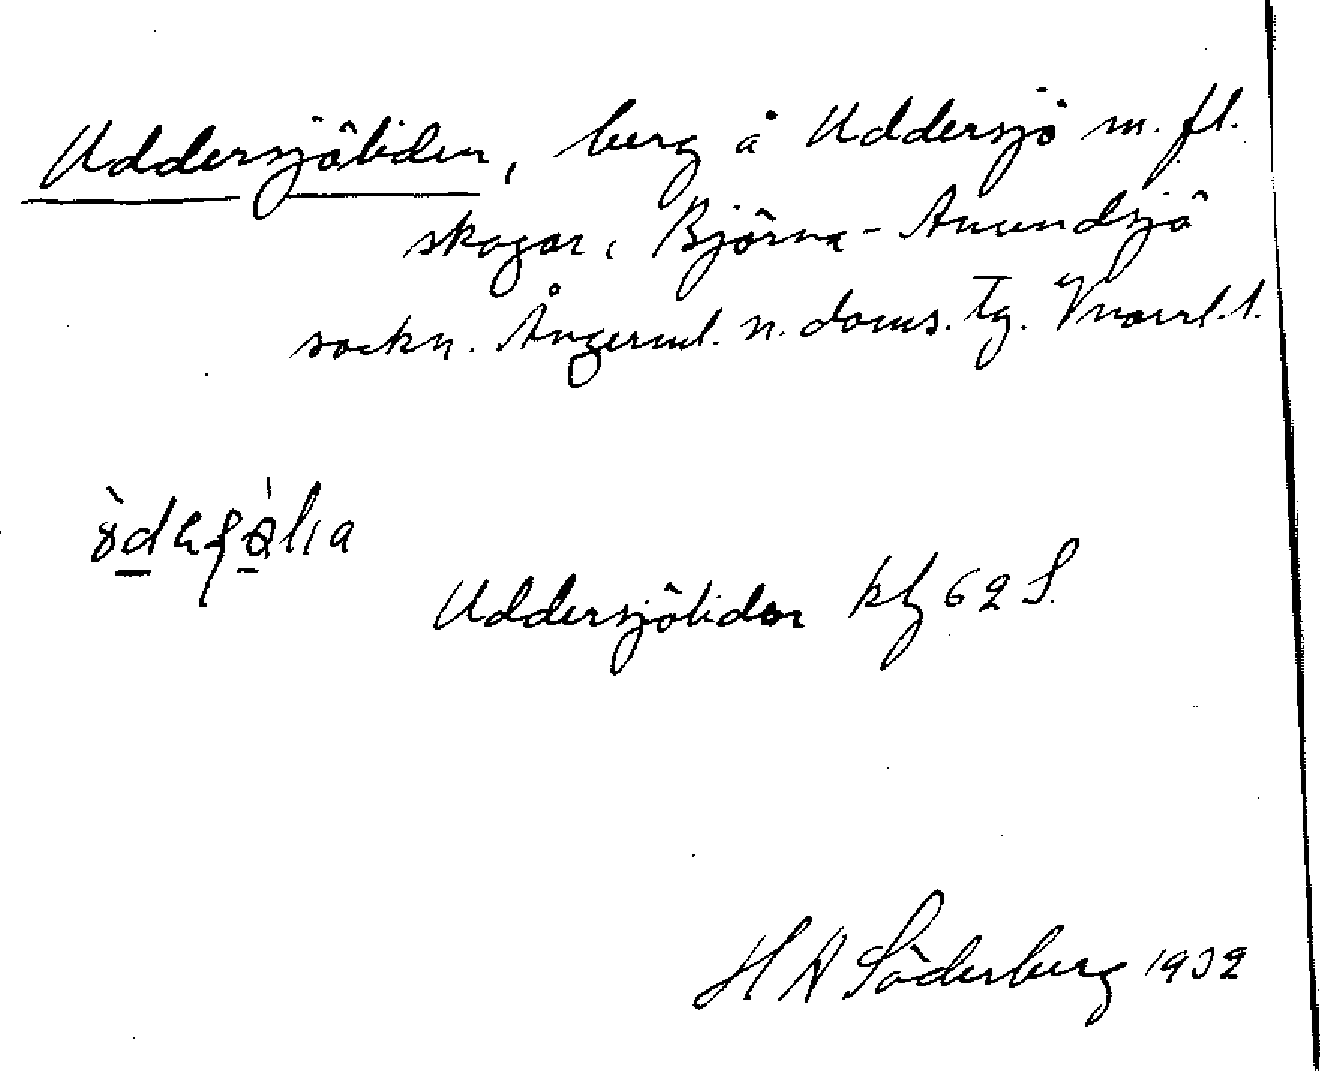 Uddersjöliden, berg å Uddersjö m. fl.
skogar, Björna - Anundsjö
sockn. Ångerml. n. doms. tg. Vnorrl. l.
Uddersjöliden kbl 62 S.
H A Söderberg 1932